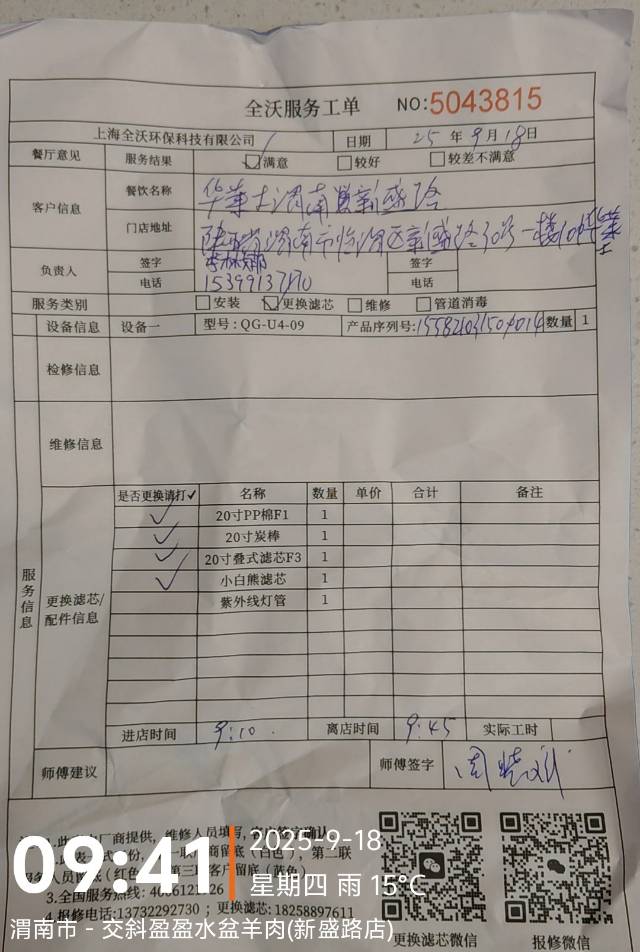 全沃服务工单 NO:5043815
上海全沃环保科技有限公司 日期 25年9月18日
餐厅意见 服务结果 ☑满意 □较好 □较差不满意
客户信息 餐饮名称 华莱士渭南新盛路
门店地址 陕西省渭南市临渭区新盛路30号一楼10 华莱士
负责人 签字 签字
电话 15399137870 电话
服务类别 □安装 ☑更换滤芯 □维修 □管道消毒
设备信息 设备一 型号:QG-U4-09 产品序列号: 数量 1
检修信息
维修信息
服务信息
更换滤芯/
配件信息
是否更换请打✓ 名称 数量 单价 合计 备注
✓ 20寸PP棉F1 1
✓ 20寸炭棒 1
✓ 20寸叠式滤芯F3 1
✓ 小白熊滤芯 1
紫外线灯管 1
进店时间 9:10 离店时间 9:45 实际工时
师傅建议 师傅签字
商提供,维修人员填写,
第二联
(红色 客户留底(蓝色)
3.全国服务热线:
4.报修电话:13732292730 ; 更换滤芯:18258897611
更换滤芯微信 报修微信
09:41
2025-9-18
星期四 雨 15°C
渭南市 - 交斜盈盈水盆羊肉(新盛路店)